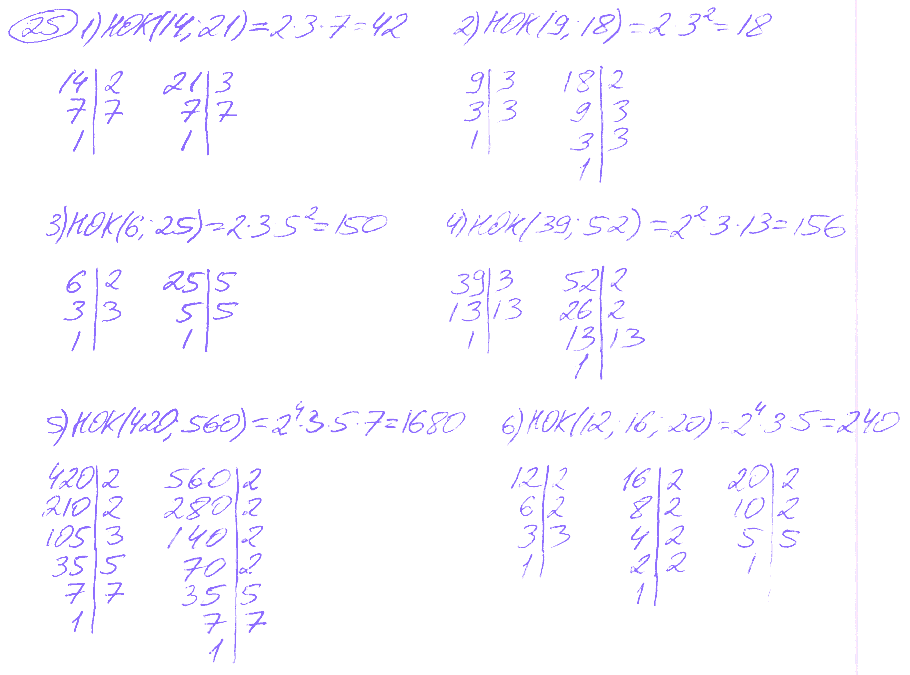 25 1) НОК(14; 21) = 2·3·7 = 42 2) НОК(9; 18) = 2·3² = 18
14 | 2 21 | 3 9 | 3 18 | 2
7 | 7 7 | 7 3 | 3 9 | 3
1 | 1 | 1 | 3 | 3
1 |
3) НОК(6; 25) = 2·3 5² = 150 4) НОК(39; 52) = 2² 3·13 = 156
6 | 2 25 | 5 39 | 3 52 | 2
3 | 3 5 | 5 13 | 13 26 | 2
1 | 1 | 1 | 13 | 13
1 |
5) НОК(420; 560) = 2⁴·3·5·7 = 1680 6) НОК(12; 16; 20) = 2⁴ 3·5 = 240
420 | 2 560 | 2 12 | 2 16 | 2 20 | 2
210 | 2 280 | 2 6 | 2 8 | 2 10 | 2
105 | 3 140 | 2 3 | 3 4 | 2 5 | 5
35 | 5 70 | 2 1 | 2 | 2 1 |
7 | 7 35 | 5 1 |
1 | 7 | 7
1 |